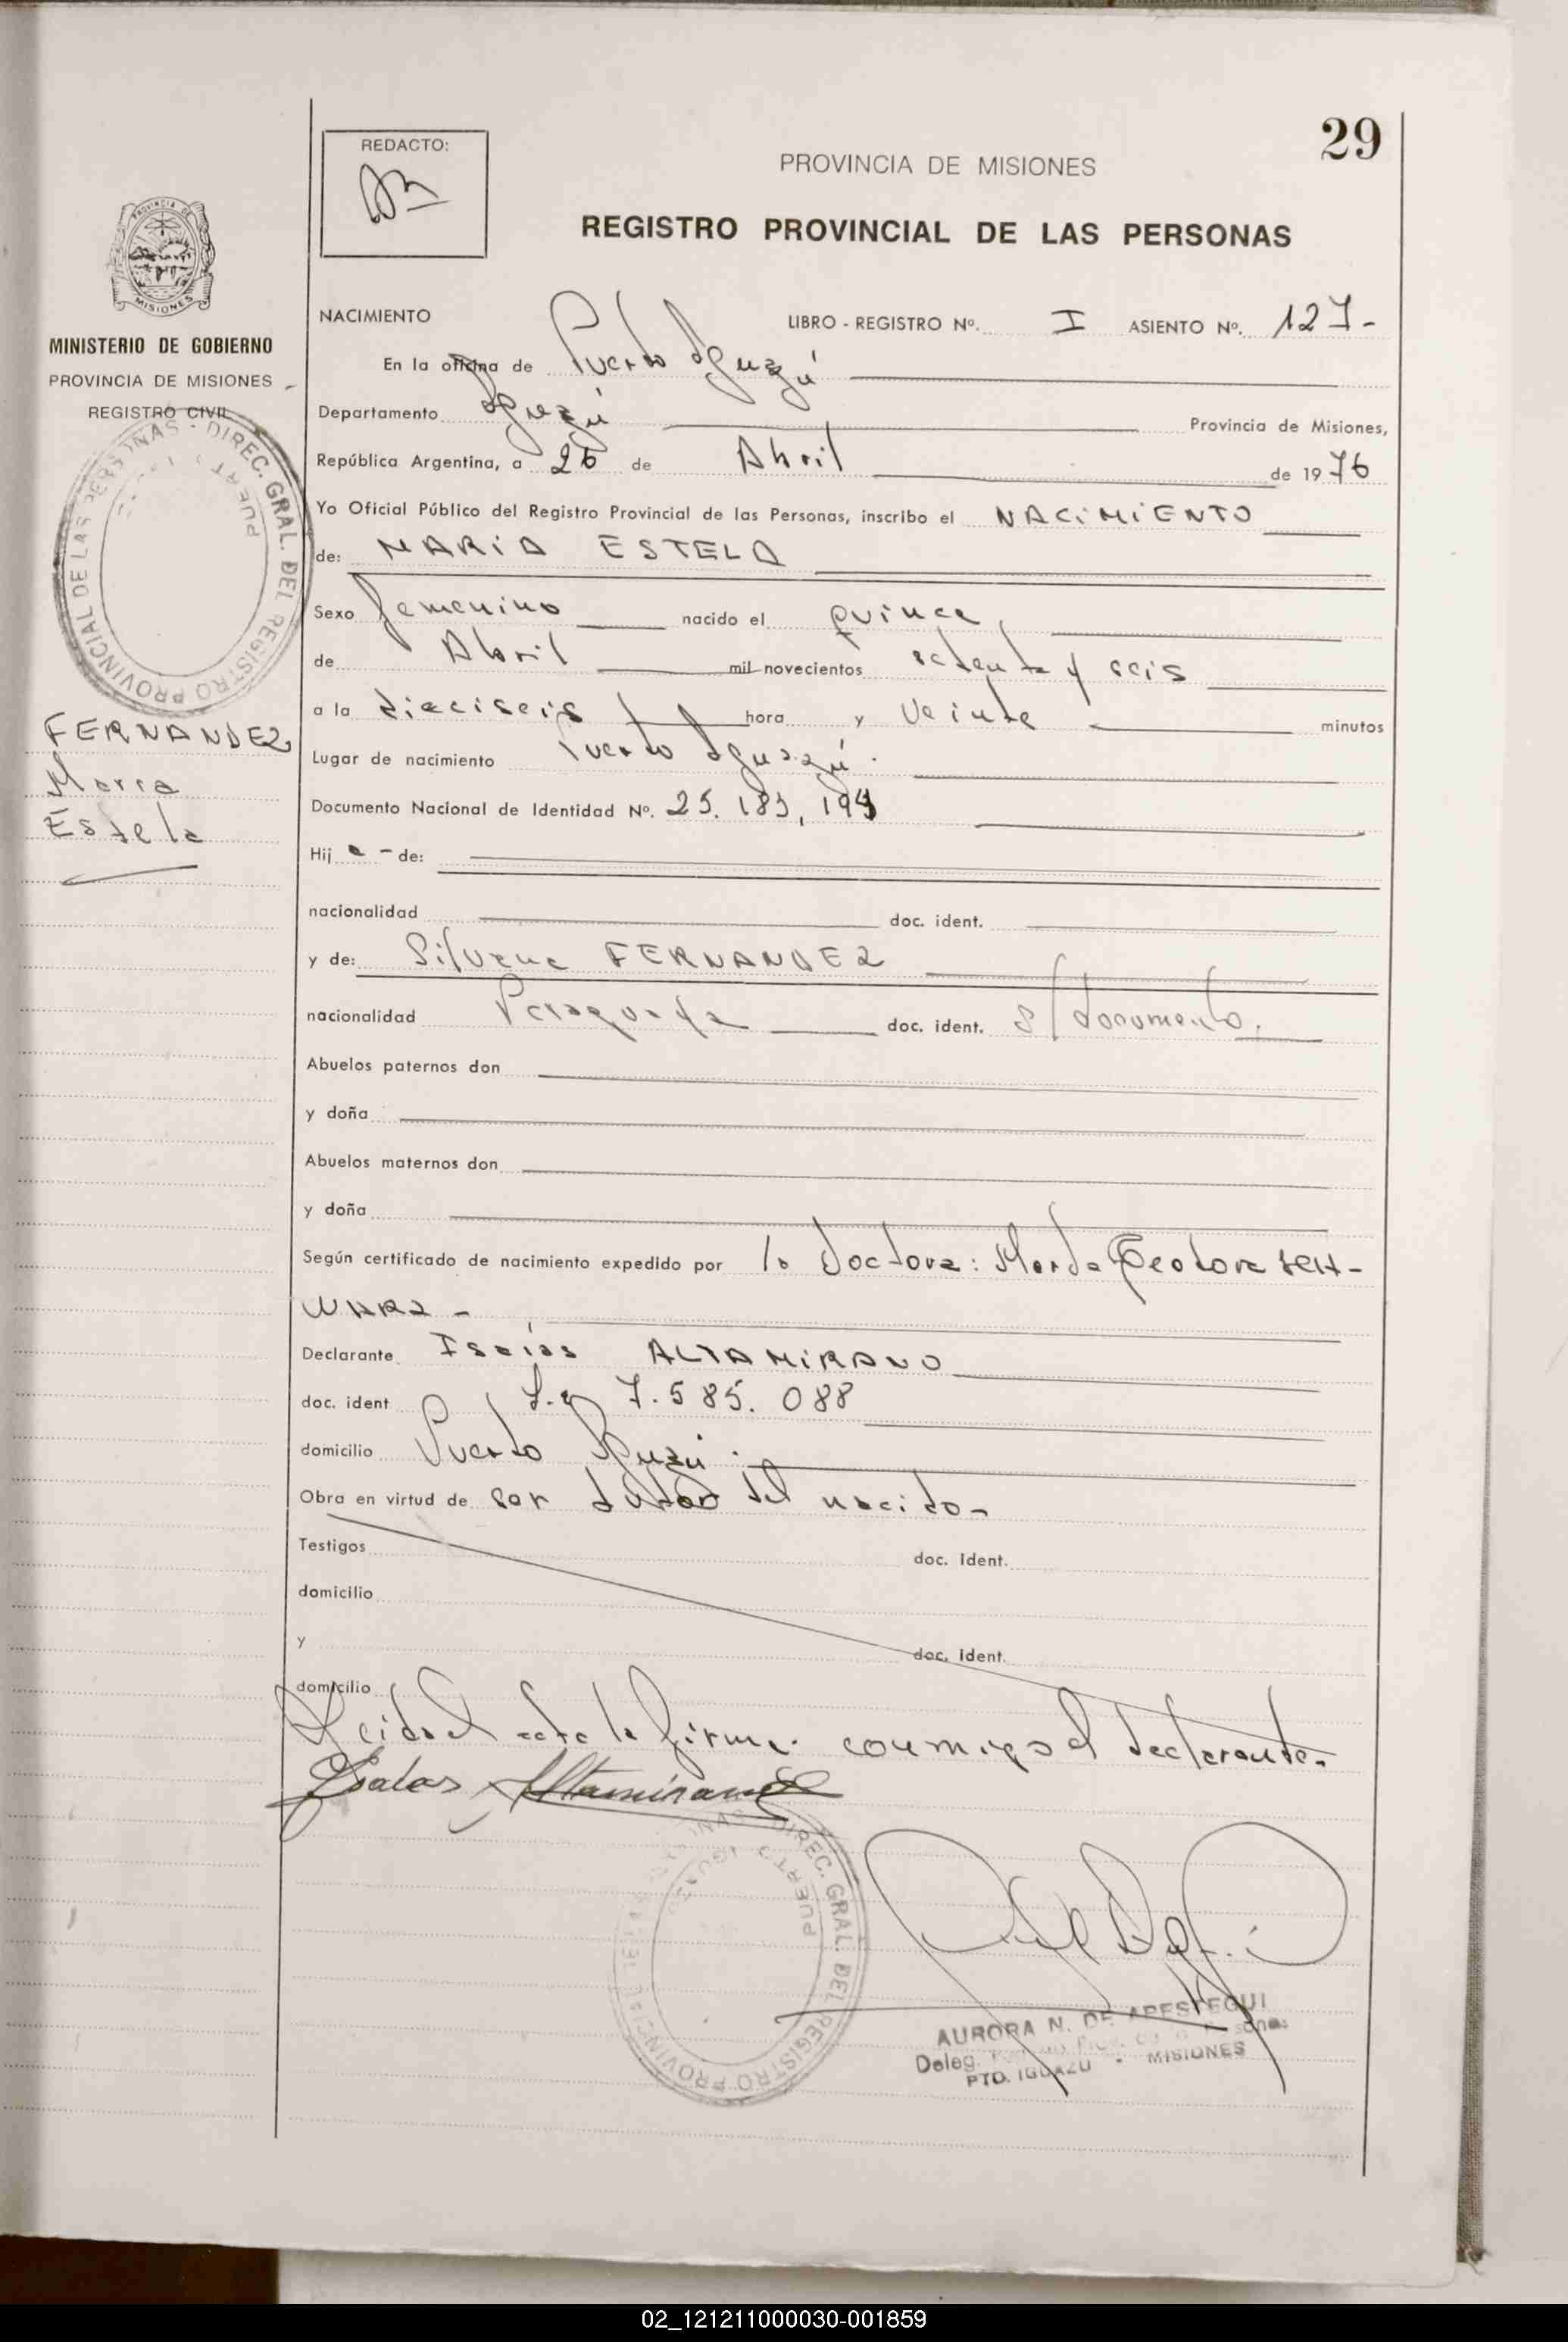 29
REDACTO:
PROVINCIA DE MISIONES
REGISTRO PROVINCIAL DE LAS PERSONAS
PROVINCIA DE
MISIONES
MINISTERIO DE GOBIERNO
PROVINCIA DE MISIONES
REGISTRO CIVIL
DIREC. GRAL. DEL REGISTRO PROVINCIAL DE LAS PERSONAS
PUERT
FERNANDEZ
Maria
Estela
NACIMIENTO LIBRO - REGISTRO Nº. I ASIENTO Nº. 127-
En la oficina de Puerto Iguazú
Departamento Iguazú Provincia de Misiones,
República Argentina, a 26 de Abril de 1976
Yo Oficial Público del Registro Provincial de las Personas, inscribo el NACIMIENTO
de: MARIA ESTELA
Sexo femenino nacido el quince
de Abril mil novecientos setenta y seis
a la dieciseis hora y veinte minutos
Lugar de nacimiento Puerto Iguazú.
Documento Nacional de Identidad Nº. 25.183,194
Hij a - de:
nacionalidad doc. ident.
y de: Silvana FERNANDEZ
nacionalidad Paraguaya doc. ident. s/documento.
Abuelos paternos don
y doña
Abuelos maternos don
y doña
Según certificado de nacimiento expedido por la doctora: Marta Teodora SCH-
WARZ -
Declarante Isaías ALTAMIRANO
doc. ident 7.585.088
domicilio Puerto Iguazú.
Obra en virtud de ser tutor del nacido-
Testigos doc. Ident.
domicilio
y doc. Ident.
domicilio
Leida el acta la firma conmigo el declarante.
Isaias Altamirano
DIREC. GRAL. DEL REGISTRO PROVINCIAL
PUERTO IGUAZU
AURORA N. DE APESTEGUI
Deleg.
PTO. IGUAZU - MISIONES
02_121211000030-001859